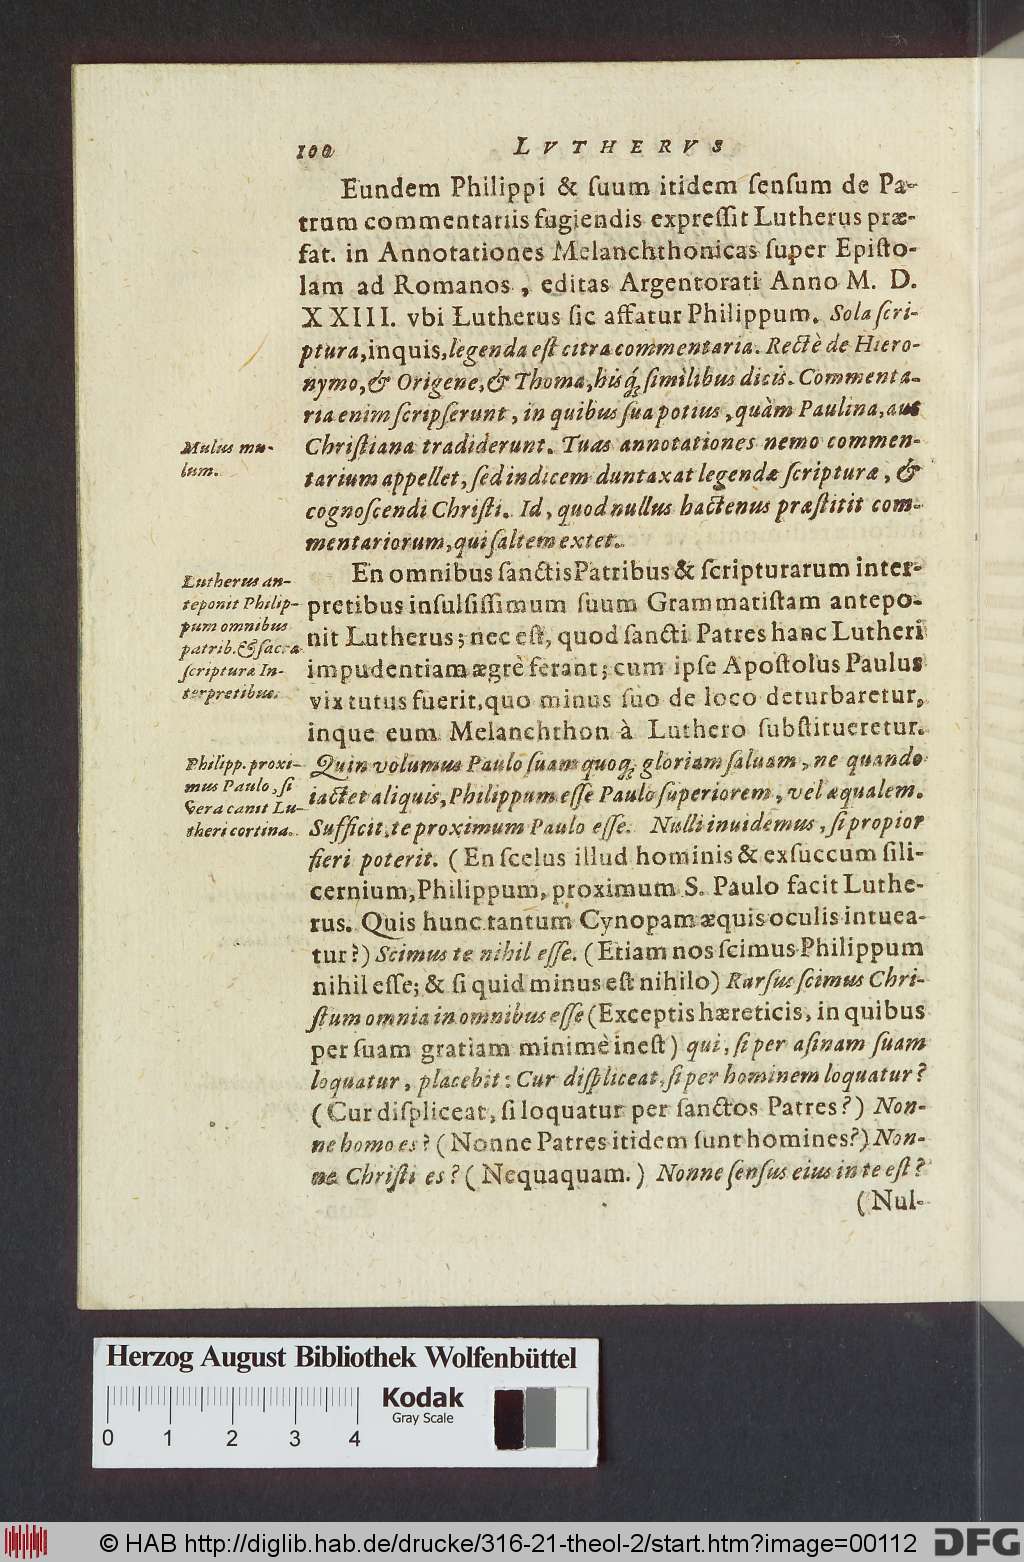 100 LVTHERVS
Eundem Philippi & ſuum itidem ſenſum de Pa-
trum commentariis fugiendis expreſſit Lutherus præ-
fat. in Annotationes Melanchthonicas ſuper Epiſto-
lam ad Romanos, editas Argentorati Anno M. D.
XXIII. vbi Lutherus ſic affatur Philippum. Sola ſcri-
ptura, inquis, legenda eſt citra commentaria. Rectè de Hiero-
nymo, & Origene, & Thoma, hisq́; ſimilibus dicis. Commenta-
ria enim ſcripſerunt, in quibus ſua potius, quàm Paulina, aut
Chriſtiana tradiderunt. Tuas annotationes nemo commen-
tarium appellet, ſed indicem duntaxat legendæ ſcripturæ, &
cognoſcendi Chriſti. Id, quod nullus hactenus præſtitit com-
mentariorum, qui ſaltem extet.
Mulus mu-
lum.
En omnibus ſanctis Patribus & ſcripturarum inter-
pretibus inſulſiſſimum ſuum Grammatiſtam antepo-
nit Lutherus; nec eſt, quod ſancti Patres hanc Lutheri
impudentiam ægrè ferant; cum ipſe Apoſtolus Paulus
vix tutus fuerit, quo minus ſuo de loco deturbaretur,
inque eum Melanchthon à Luthero ſubſtitueretur.
Lutherus an-
teponit Philip-
pum omnibus
patrib. & ſacræ
ſcripturæ In-
terpretibus.
Quin volumus Paulo ſuam quoq; gloriam ſaluam, ne quando
iactet aliquis, Philippum eſſe Paulo ſuperiorem, vel æqualem.
Sufficit, te proximum Paulo eſſe. Nulli inuidemus, ſi propior
fieri poterit. (En ſcelus illud hominis & exſuccum ſili-
cernium, Philippum, proximum S. Paulo facit Luthe-
rus. Quis hunc tantum Cynopam æquis oculis intuea-
tur?) Scimus te nihil eſſe. (Etiam nos ſcimus Philippum
nihil eſſe; & ſi quid minus eſt nihilo) Rurſus ſcimus Chri-
ſtum omnia in omnibus eſſe (Exceptis hæreticis, in quibus
per ſuam gratiam minimè ineſt) qui, ſi per aſinam ſuam
loquatur, placebit: Cur diſpliceat, ſi per hominem loquatur?
(Cur diſpliceat, ſi loquatur per ſanctos Patres?) Non-
ne homo es? (Nonne Patres itidem ſunt homines?) Non-
ne Chriſti es? (Nequaquam.) Nonne ſenſus eius in te eſt?
(Nul-
Philipp. proxi-
mus Paulo, ſi
vera canit Lu-
theri cortina.
Herzog August Bibliothek Wolfenbüttel
Kodak
Gray Scale
0 1 2 3 4
© HAB http://diglib.hab.de/drucke/316-21-theol-2/start.htm?image=00112
DFG